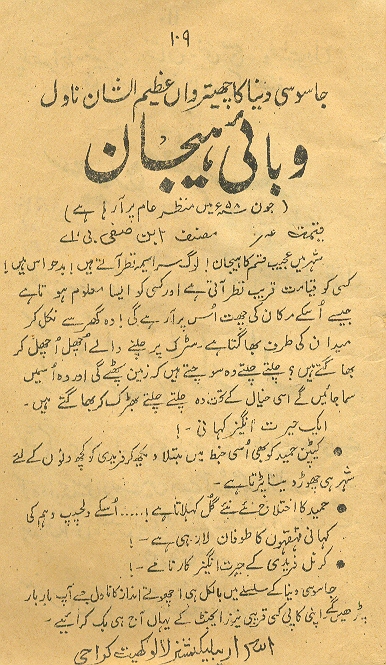 ۱۰۹
جاسوسی دنیا کا چھیترواں عظیم الشان ناول
وبائی ہیجان
( جون ۵۸ء میں منظر عام پر آ رہا ہے )
قیمت مصنف ابن صفی بی اے
شہر میں عجیب قسم کا ہیجان! لوگ سراسیمہ نظر آتے ہیں! بدحواس ہیں!
کسی کو قیامت قریب نظر آتی ہے اور کسی کو ایسا معلوم ہوتا ہے
جیسے اُسکے مکان کی چھت اُس پر آ رہے گی! وہ گھر سے نکل کر
میدان کی طرف بھاگتا ہے۔ سڑک پر چلنے والے اُچھل اُچھل کر
بھاگتے ہیں؟ چلتے چلتے وہ سوچتے ہیں کہ زمین پھٹے گی اور وہ اُسمیں
سما جائیں گے اسی خیال کے تحت وہ چلتے چلتے بھڑک کر بھاگتے ہیں۔
ایک حیرت انگیز کہانی -!
● کیپٹن حمید کو بھی اُسی خبط میں مبتلا دیکھ کر فریدی کو کچھ دنوں کے لئے
شہر ہی چھوڑ دینا پڑتا ہے -
● حمید کا اختلاج نئے نئے گُل کھلاتا ہے!..... اُسکے دلچسپ وہم کی
کہانی قہقہوں کا طوفان لا رہی ہے -!
● کرنل فریدی کے حیرت انگیز کارنامے -!
جاسوسی دنیا کے سلسلے میں بالکل ہی اچھوتے انداز کا ناول جسے آپ بار بار
پڑھیں گے اپنی کاپی کسی قریبی نیوز ایجنٹ کے یہاں آج ہی بک کرائیے -
اسرار پبلیکیشنز لالوکھیت کراچی